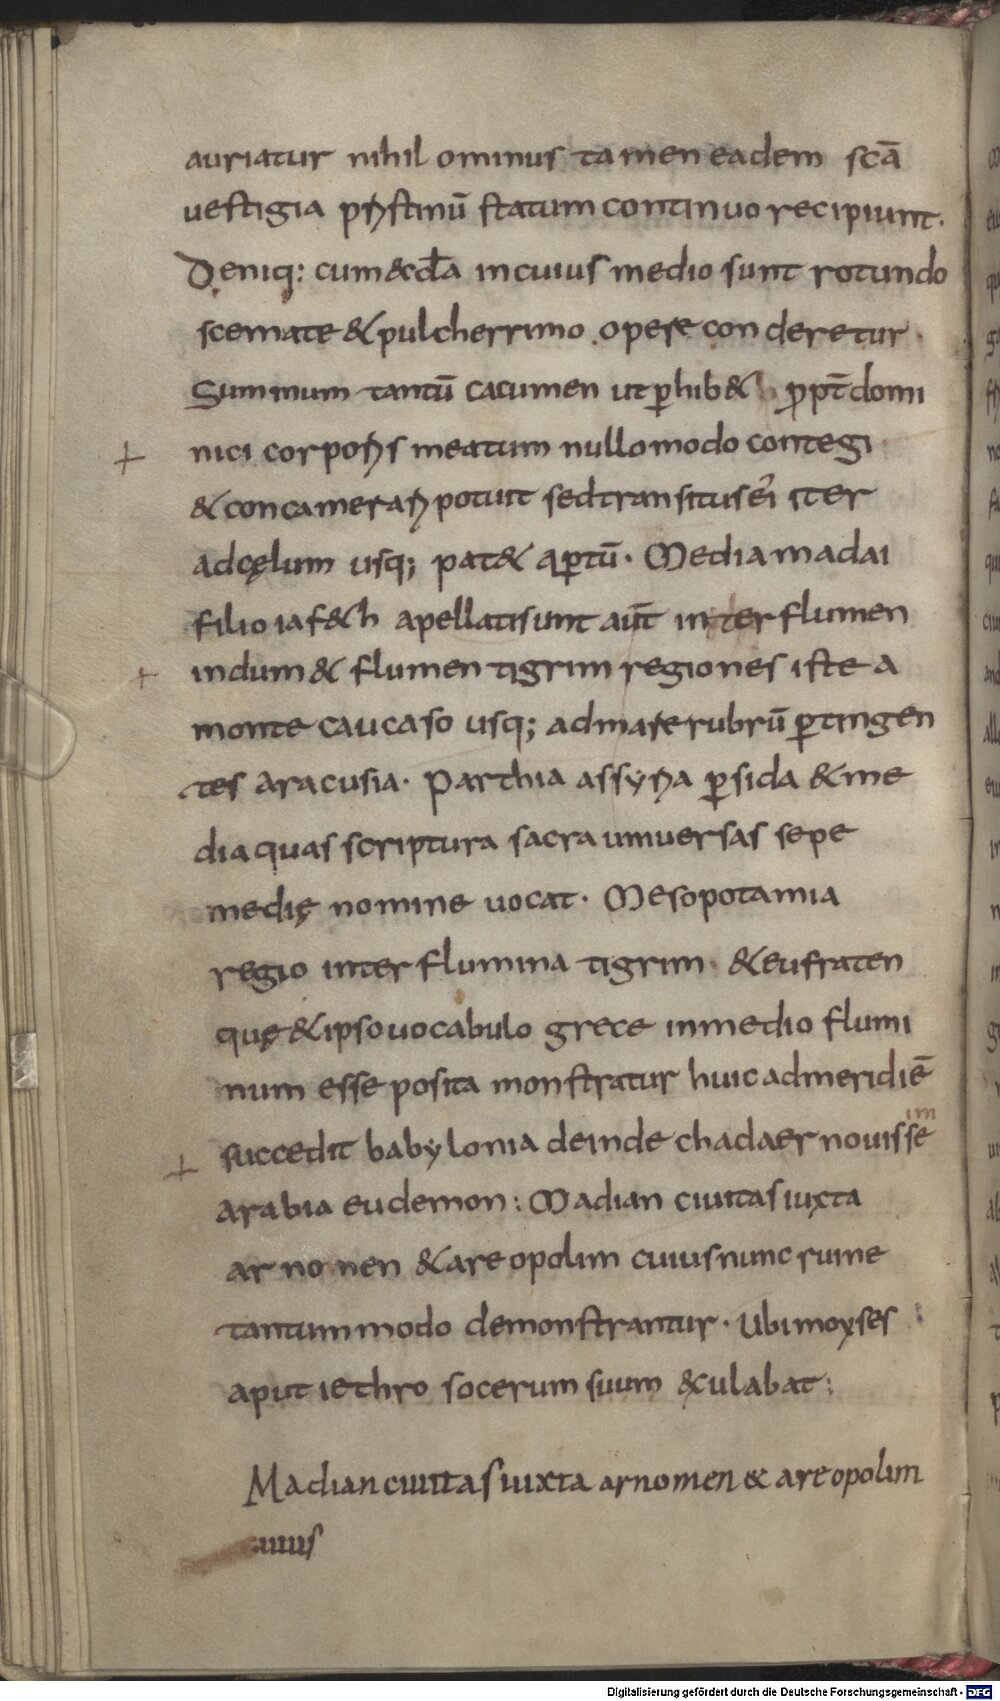 auriatur nihil ominus tamen eadem scā
uestigia pristinū statum continuo recipiunt.
Deniq: cum &cl̄a in cuius medio sunt rotundo
scemate & pulcherrimo opere conderetur.
Summum tantū cacumen ut ꝑhib& ꝓpt̄ domi
nici corporis meatum nullo modo contegi
& concamerari potuit sed transitus ei iter
ad cęlum usq; pat& aꝑtū. Media madai
filio iaf&h apellati sunt aut̄ inter flumen
indum & flumen tigrim regiones iste a
monte caucaso usq; ad mare rubrū ꝑtingen
tes aracusia. Parthia assyria ꝑsida & me
dia quas scriptura sacra uniuersas sepe
medię nomine uocat. Mesopotamia
regio inter flumina tigrim. & eufraten
quę & ipso uocabulo grece in medio flumi
num esse posita monstratur huic ad meridiē
im
succedit babylonia deinde chadaer nouisse
arabia eudemon: Madian ciuitas iuxta
arnonen & areopolim cuius nunc ruine
tantummodo demonstrantur. Ubi moyses
aput iethro socerum suum &culabat:
Madian ciuitas iuxta arnomen & areopolim
cuius
Digitalisierung gefördert durch die Deutsche Forschungsgemeinschaft - DFG